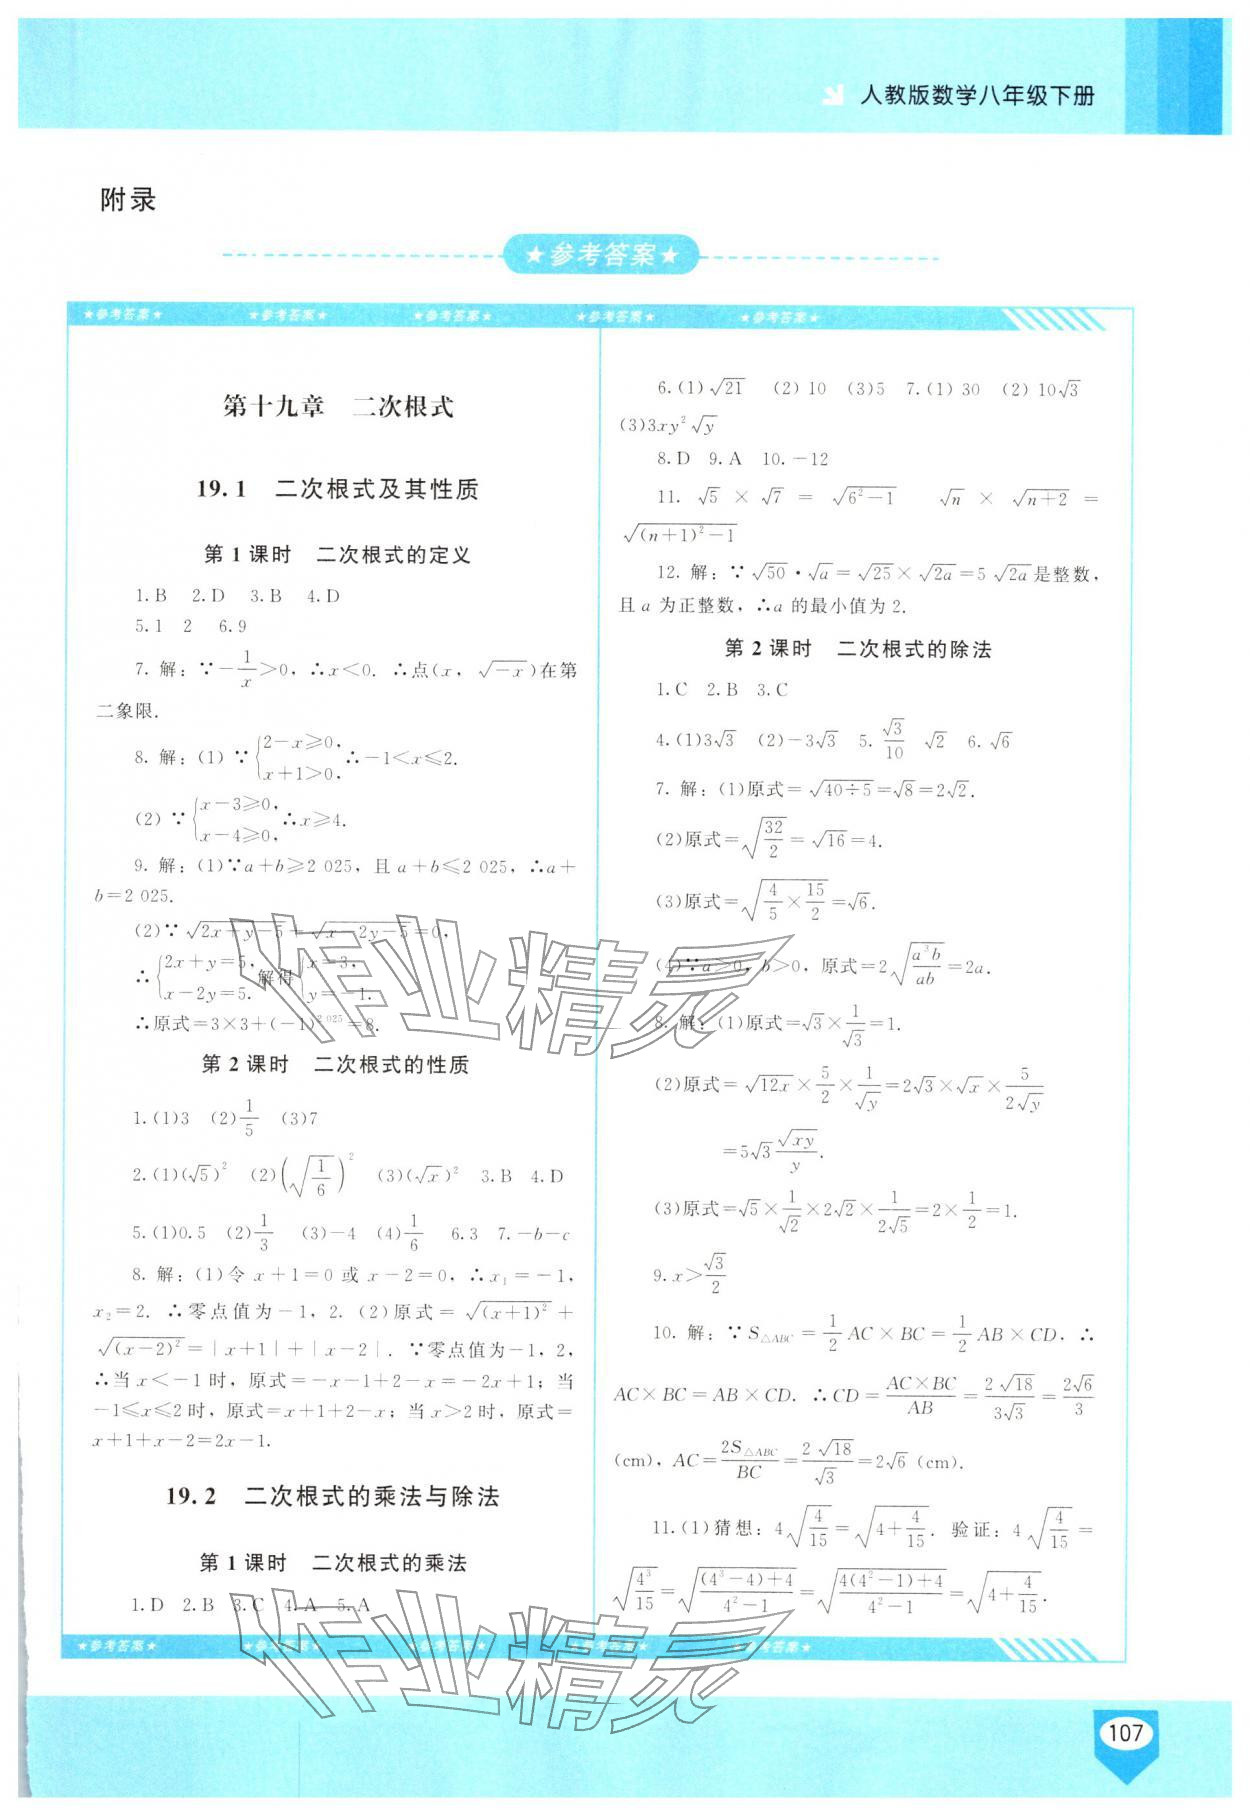 人教版数学八年级下册
附录
★参考答案★
★参考答案★ ★参考答案★ ★参考答案★ ★参考答案★ ★参考答案★
第十九章 二次根式
19.1 二次根式及其性质
第1课时 二次根式的定义
1.B 2.D 3.B 4.D
5.1 2 6.9
7. 解：∵-1/x>0，∴x<0. ∴点(x，√(-x))在第
二象限.
8. 解：(1) ∵{2-x≥0, x+1>0, ∴-1<x≤2.
(2) ∵{x-3≥0, x-4≥0, ∴x≥4.
9. 解：(1)∵a+b≥2 025，且 a+b≤2 025，∴a+
b=2 025.
(2)∵√(2x+y-5)+√(x-2y-5)=0，
∴{2x+y=5, x-2y=5. 解得{x=3, y=-1.
∴原式=3×3+(-1)^2 025=8.
第2课时 二次根式的性质
1.(1)3 (2)1/5 (3)7
2.(1)(√5)² (2)(√(1/6))² (3)(√x)² 3.B 4.D
5.(1)0.5 (2)1/3 (3)-4 (4)1/6 6.3 7.-b-c
8. 解：(1)令 x+1=0 或 x-2=0，∴x₁=-1，
x₂=2. ∴零点值为-1，2. (2)原式=√((x+1)²)+
√((x-2)²)=|x+1|+|x-2|. ∵零点值为-1，2，
∴当 x<-1时，原式=-x-1+2-x=-2x+1；当
-1≤x≤2时，原式=x+1+2-x；当 x>2时，原式=
x+1+x-2=2x-1.
19.2 二次根式的乘法与除法
第1课时 二次根式的乘法
1.D 2.B 3.C 4.A 5.A
6.(1)√21 (2)10 (3)5 7.(1)30 (2)10√3
(3)3xy²√y
8.D 9.A 10.-12
11. √5 × √7 = √(6²-1) √n × √(n+2) =
√((n+1)²-1)
12. 解：∵√50·√a=√25×√(2a)=5√(2a)是整数，
且 a 为正整数，∴a 的最小值为 2.
第2课时 二次根式的除法
1.C 2.B 3.C
4.(1)3√3 (2)-3√3 5.√3/10 √2 6.√6
7. 解：(1)原式=√(40÷5)=√8=2√2.
(2)原式=√(32/2)=√16=4.
(3)原式=√(4/5×15/2)=√6.
(4)∵a>0，b>0，原式=2√(a³b/ab)=2a.
8. 解：(1)原式=√3×1/√3=1.
(2)原式=√(12x)×5/2×1/√y=2√3×√x×5/(2√y)
=5√3 √(xy)/y.
(3)原式=√5×1/√2×2√2×1/(2√5)=2×1/2=1.
9.x>√3/2
10. 解：∵S△ABC=1/2 AC×BC=1/2 AB×CD，∴
AC×BC=AB×CD. ∴CD=(AC×BC)/AB=2√18/(3√3)=2√6/3
(cm)，AC=2S△ABC/BC=2√18/√3=2√6 (cm).
11.(1)猜想：4√(4/15)=√(4+4/15). 验证：4√(4/15)=
√(4³/15)=√(((4³-4)+4)/(4²-1))=√((4(4²-1)+4)/(4²-1))=√(4+4/15).
★参考答案★ ★参考答案★ ★参考答案★ ★参考答案★ ★参考答案★
作业精灵
作业精灵
107